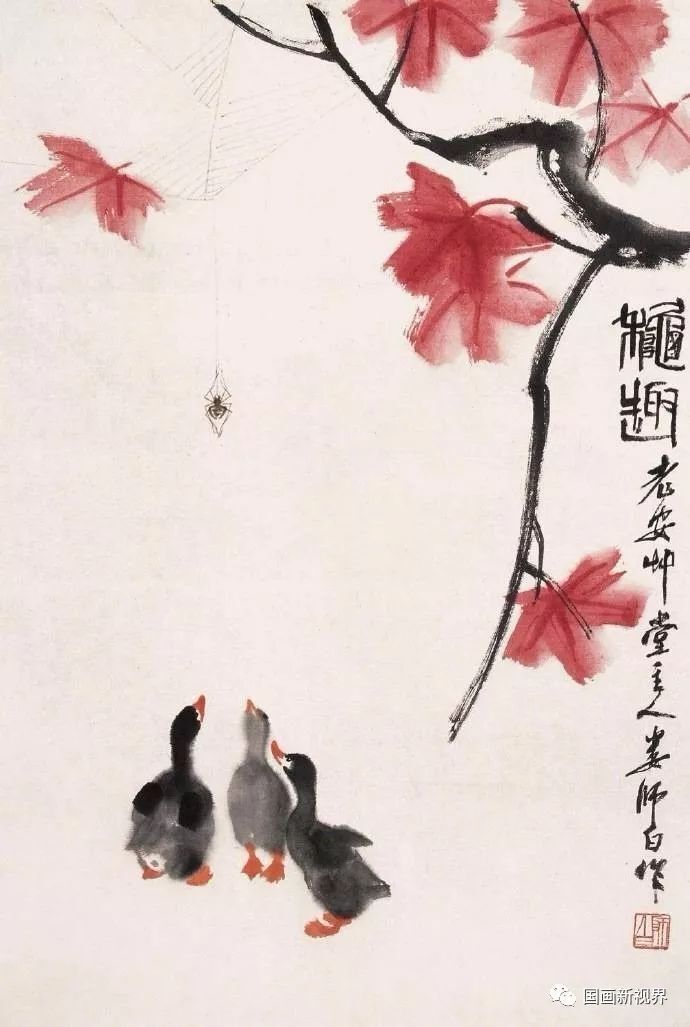 龝趣
老安艸堂主人娄师白作
国画新视界